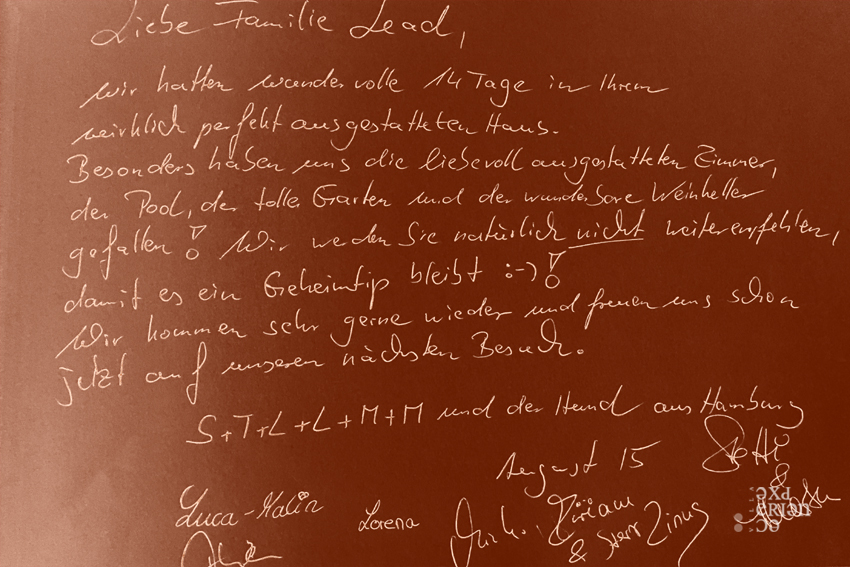 Liebe Familie Lead,
wir hatten wundervolle 14 Tage in Ihrem
wirklich perfekt ausgestatteten Haus.
Besonders haben uns die liebevoll ausgestatteten Zimmer,
der Pool, der tolle Garten und der wunderbare Weinkeller
gefallen! Wir werden Sie natürlich nicht weiterempfehlen,
damit es ein Geheimtip bleibt :-)!
Wir kommen sehr gerne wieder und freuen uns schon
jetzt auf unseren nächsten Besuch.
S+T+L+L+M+M und der Hund aus Hamburg
August 15
&
Luca-Malin
Lorena
Miriam
& Herr Zinus